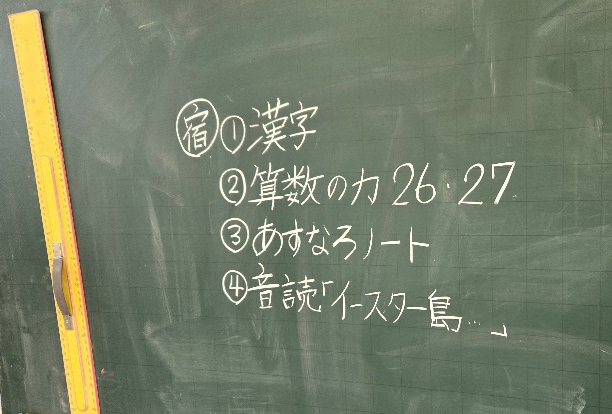 宿 ①漢字
②算数の力 26・27
③あすなろノート
④音読「イースター島…」